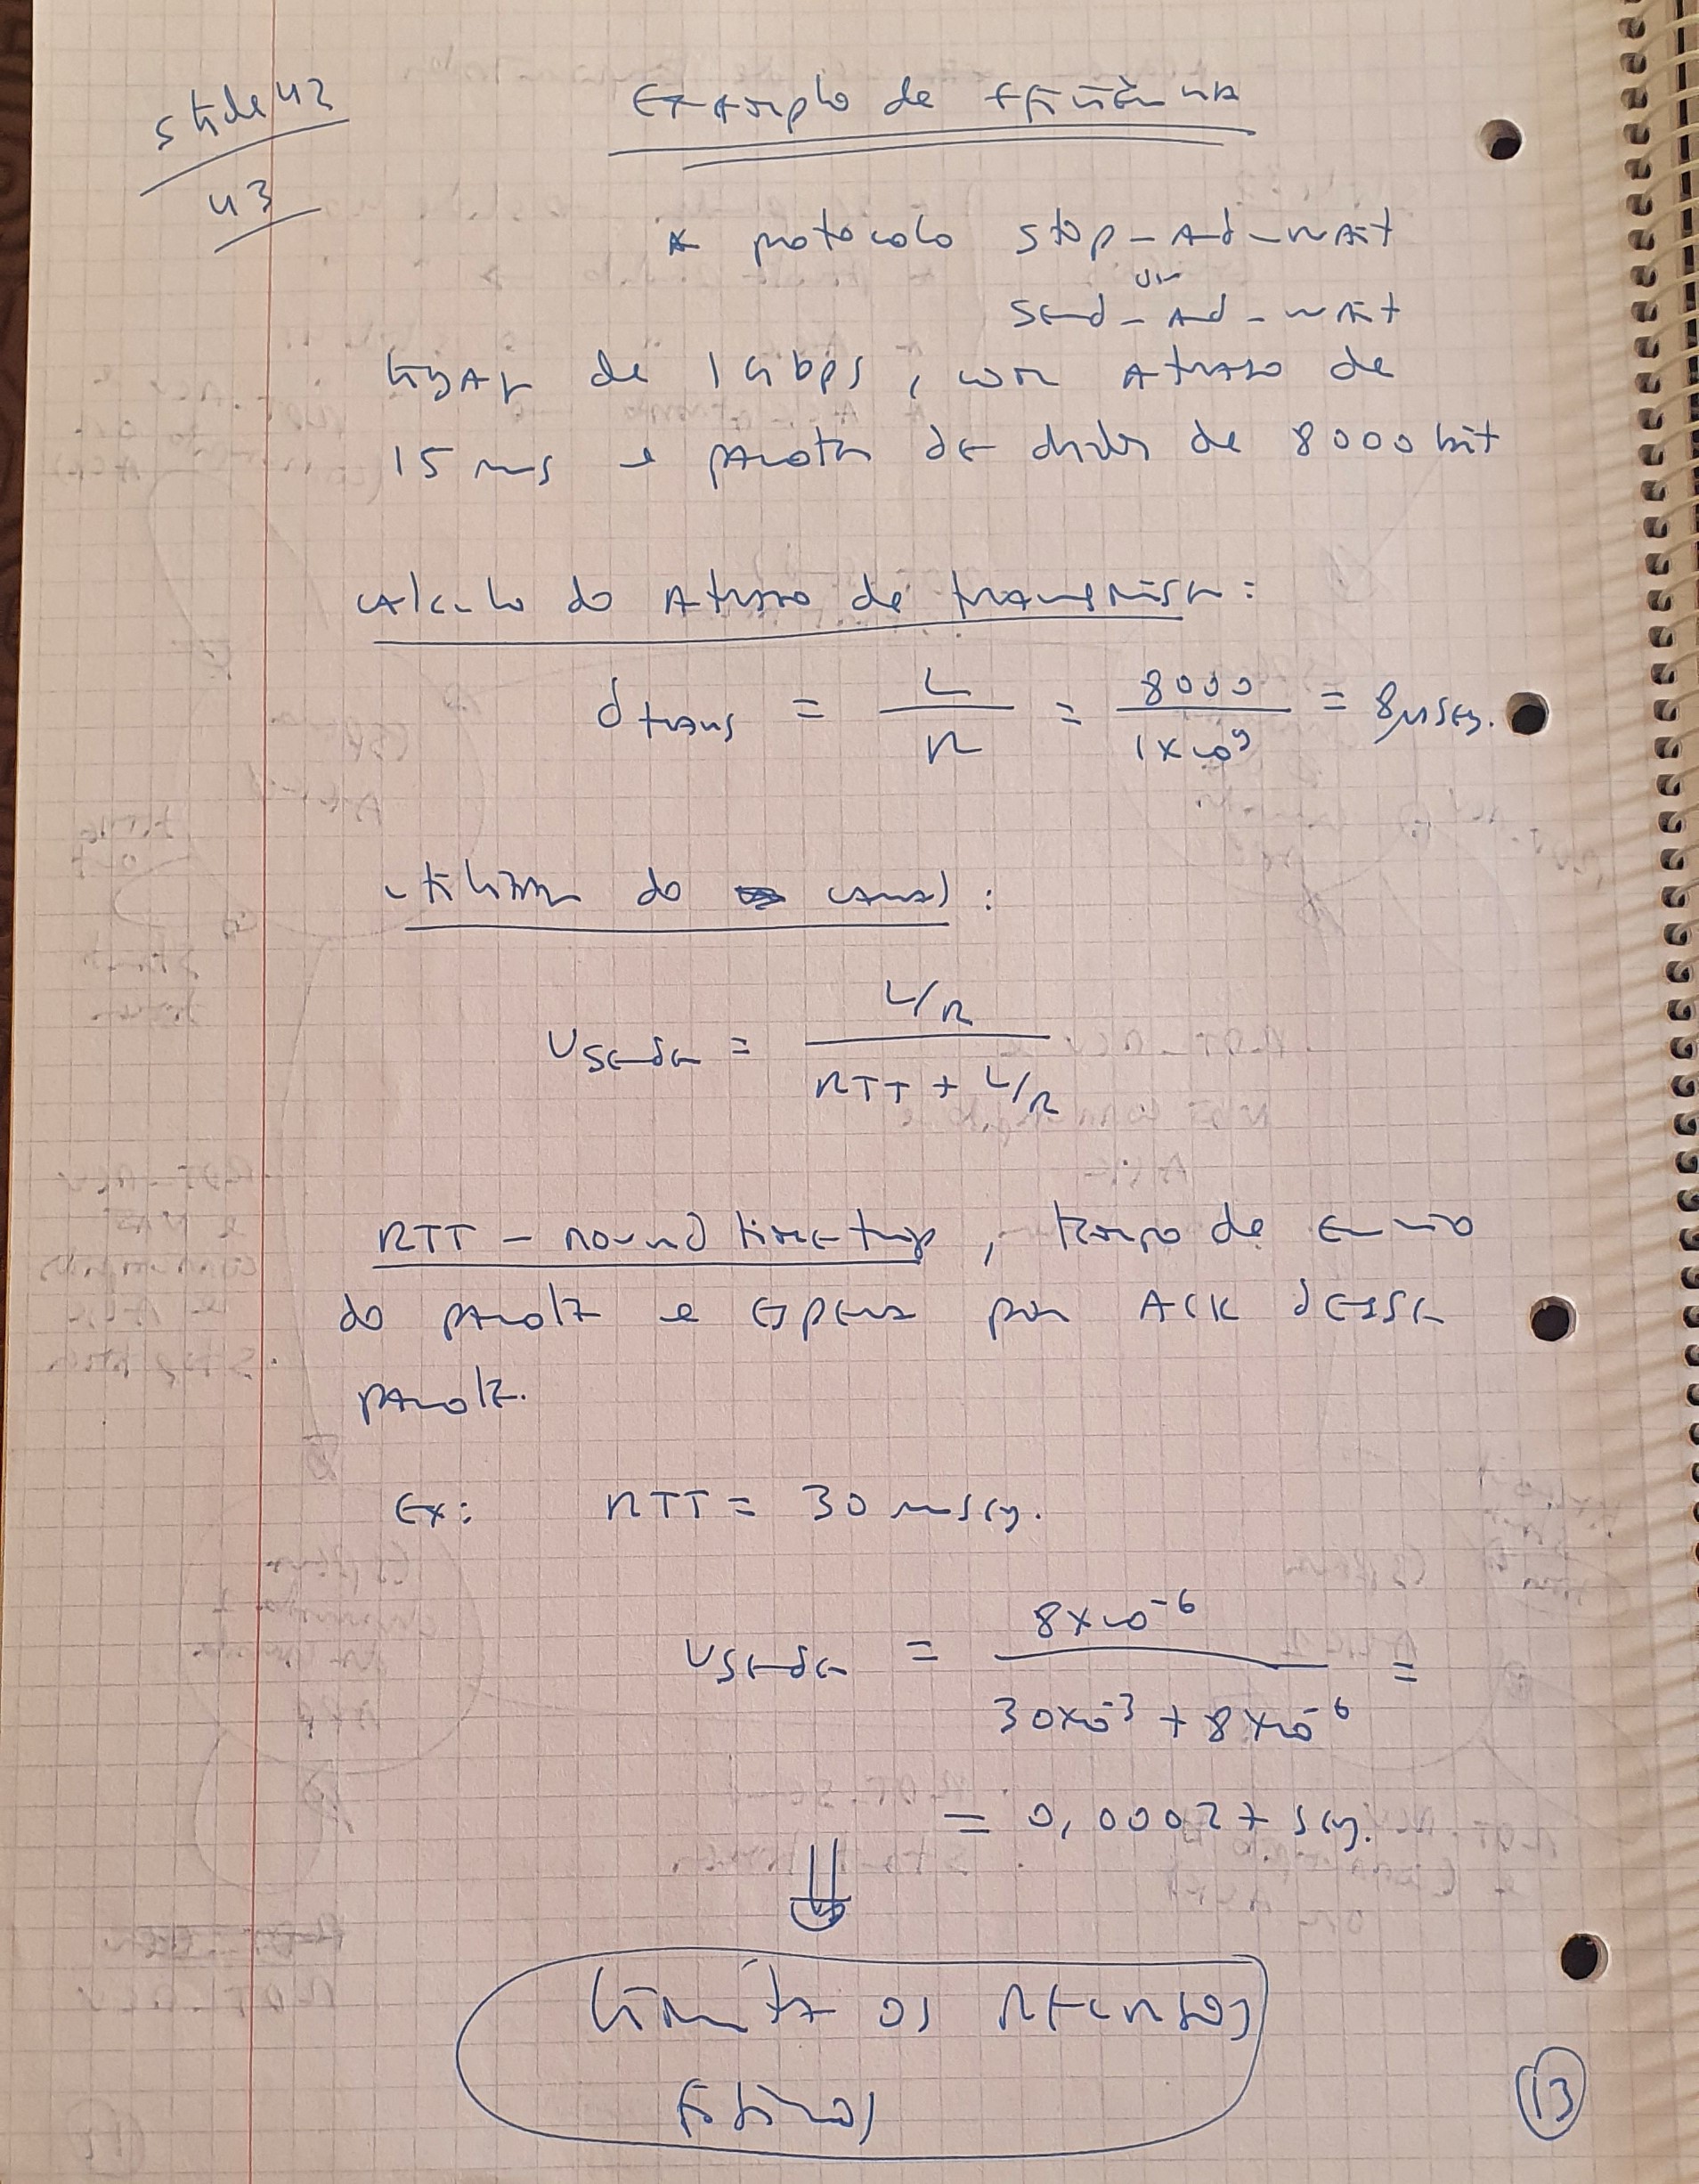 slide 42
43
Exemplo de Eficiência
* protocolo stop-and-wait
ou
send-and-wait
ligação de 1 Gbps, com atraso de
15 ms e pacotes de dados de 8000 bit
calculo do atraso de transmissão:
d trans = L / R = 8000 / 1x10⁹ = 8 µseg.
utilização do canal:
U sender = L/R / RTT + L/R
RTT - round time trip, tempo de envio
do pacote e espera por ACK desse
pacote.
Ex: RTT = 30 mseg.
U sender = 8x10⁻⁶ / 30x10⁻³ + 8x10⁻⁶ =
= 0,00027 seg.
⇓
limita os recursos
físicos
13